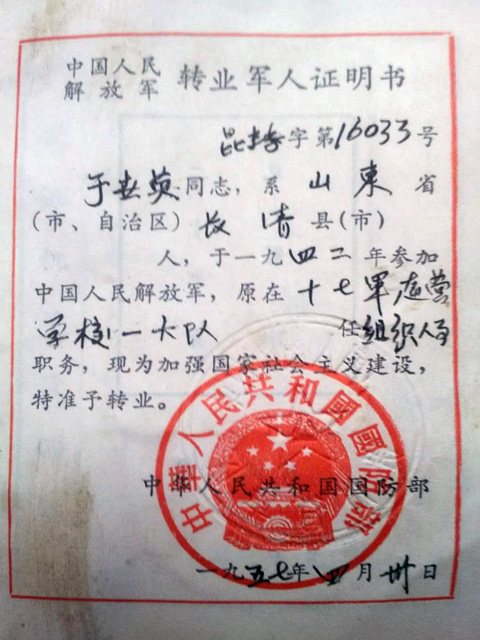 中国人民
解放军 转业军人证明书
昆转字第16033号
于世英同志，系山東省
(市、自治区)长清县(市)
人，于一九四二年参加
中国人民解放军，原在十七军速营
学校一大队 任组织人
职务，现为加强国家社会主义建设，
特准予转业。
中华人民共和国国防部
一九五七年四月卅日
中華人民共和國國防部